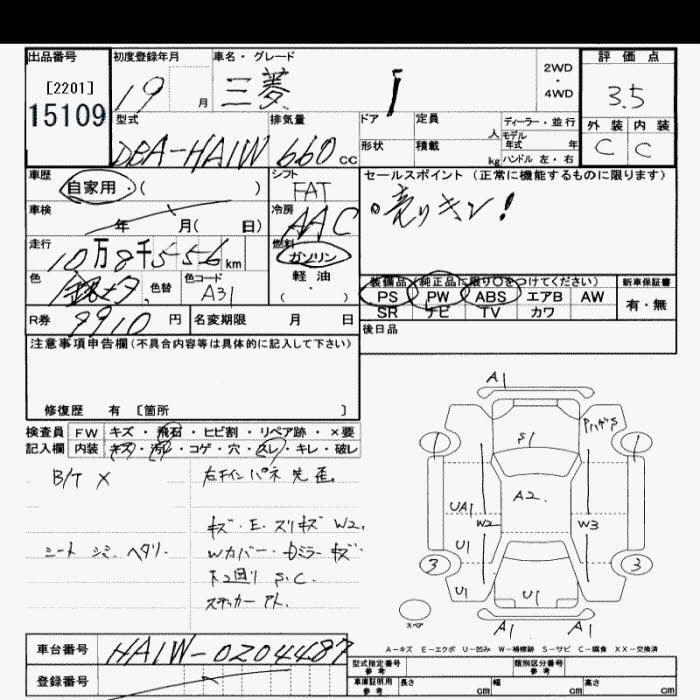 出品番号 初度登録年月 車名・グレード 評価点
[2201] 2WD・4WD
15109 19 月 三菱 i 3.5
型式 排気量 ドア 定員 人 ディーラー・並行 外装 内装
DBA-HA1W 660 CC 形状 積載 kg モデル年式 年 ハンドル 左・右 C C
車歴 シフト セールスポイント(正常に機能するものに限ります)
自家用・( ) FAT 売りキリ!
車検 年 月( 日) 冷房 AAC
走行 10万8千556km 燃料 ガソリン
軽油
( ・ )
色 色替 色コード A31
装備品(純正品に限り○をつけてください) 新車保証書
PS PW ABS エアB AW 有・無
SR ナビ TV カワ
R券 9910 円 名変期限 月 日 後日品
注意事項申告欄(不具合内容等は具体的に記入して下さい)
修復歴 有 〔箇所 〕
検査員 FW キズ・飛石・ヒビ割・リペア跡・×要
記入欄 内装 キズ・汚れ・コゲ・穴・スレ・キレ・破レ
B/T X
シート シミ ヘタリ.
キズ・E・スリキズ W2.
Wカバー・ドミラー キズ
下2回り S.C.
ステッカーアト.
A1
S1
1 1
A2.
UA1 W2 W3
U1
3 3
U1 U1
スペア A1 A1
A-キズ E-エクボ U-凹み W-補修跡 S-サビ C-腐食 XX-交換済
車台番号 HA1W-0204487
登録番号
型式指定番号 参考 類別区分番号 参考
車庫証明用 参考 長さ cm 幅 cm 高さ cm